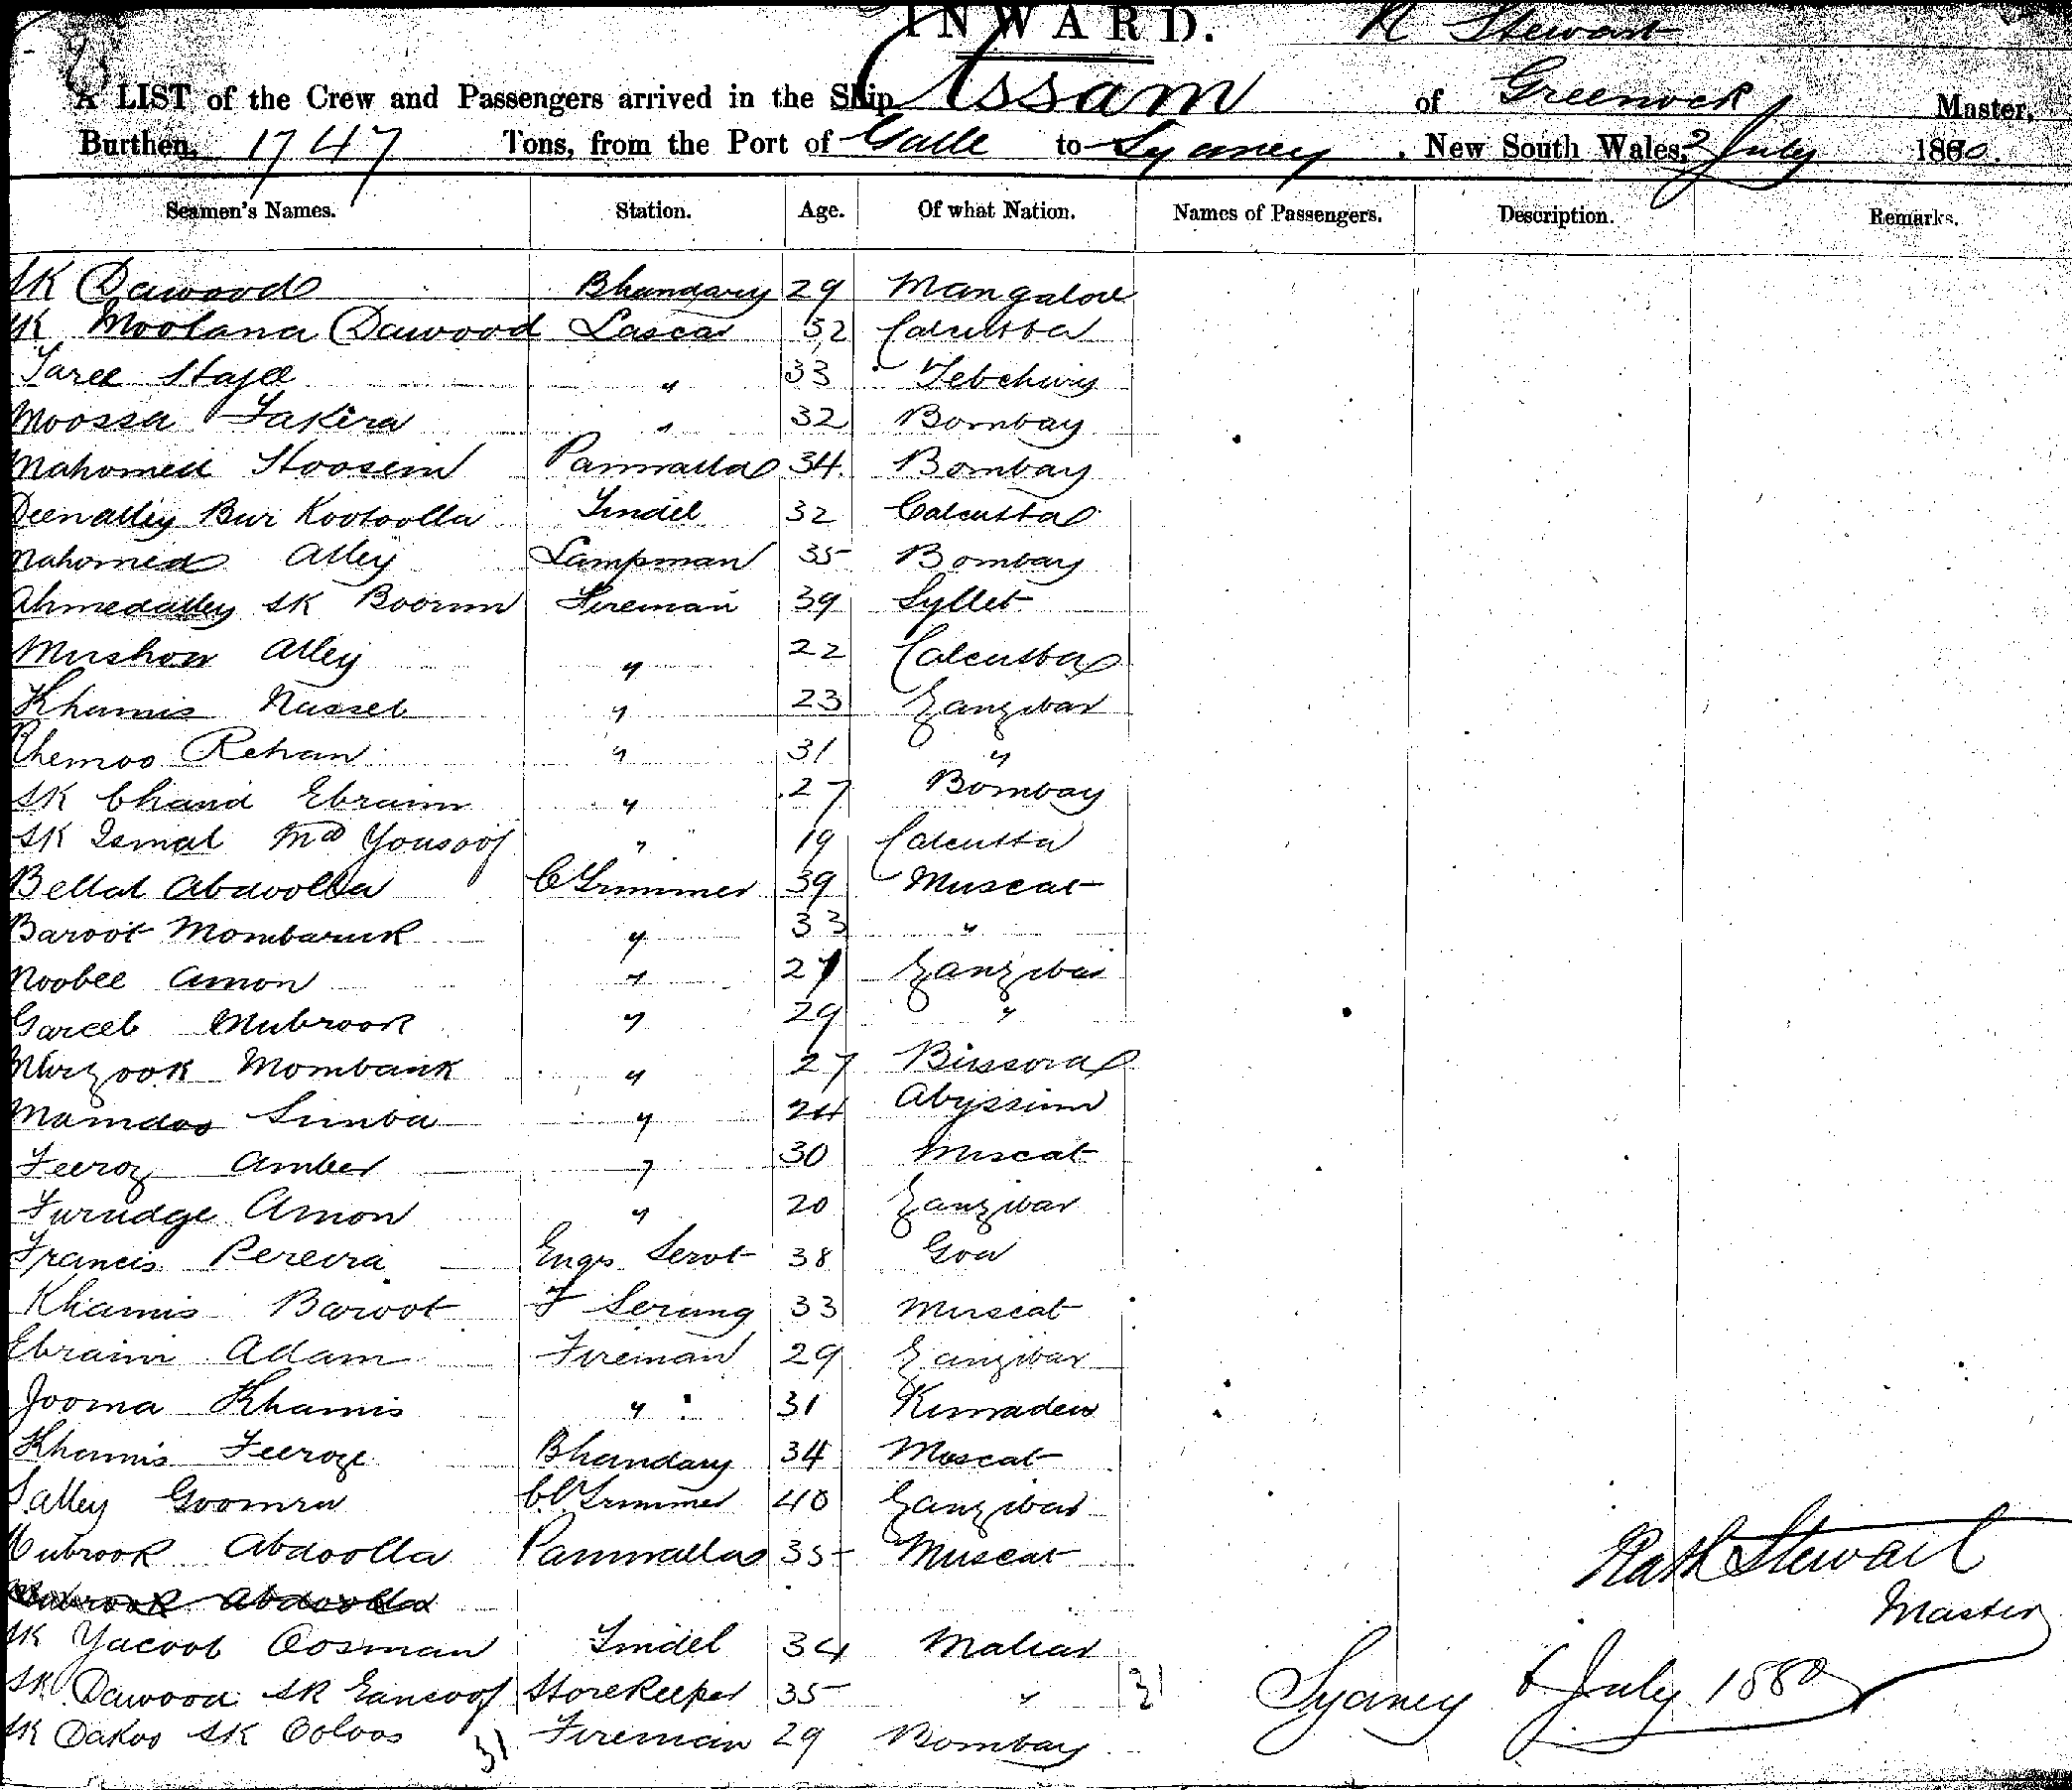 INWARD. R Stewart
A LIST of the Crew and Passengers arrived in the Ship Assam of Greenock Master,
Burthen, 1747 Tons, from the Port of Galle to Sydney, New South Wales, 3 July 1880.
Seamen's Names. Station. Age. Of what Nation. Names of Passengers. Description. Remarks.
SK Dawood Bhandary 29 Mangalore
SK Moolana Dawood Lascar 32 Calcutta
" 33
Moossa Fakira " 32 Bombay
Mahomed Hoosein Pannvalla 34 Bombay
Deenalley Bur Kootoolla Tindel 32 Calcutta
Mahomed Alley Lampman 35 Bombay
Ahmedalley SK Boorun Fireman 39 Syllet
Mushow Alley " 22 Calcutta
Khamis Nasseb " 23 Zanzibar
Rehan " 31 "
SK Chand Ebraim " 27 Bombay
SK Ismal Md Yousoof " 19 Calcutta
Bellal Abdoolla C Trimmer 39 Muscat
Baroot Mombaruk " 33 "
Noobee Amon " 27 Zanzibar
Gareeb Mubrook " 29 "
Murzook Mombaruk " 27 Bussora
Mamdoo Simba " 24 Abyssinia
Feeroz Amber " 30 Muscat
Furudge Amon " 20 Zanzibar
Francis Pereira Engrs Servt 38 Goa
Khamis Baroot F Serang 33 Muscat
Ebraim Adam Fireman 29 Zanzibar
Jooma Khamis " 31
Khamis Feeroze Bhandary 34 Muscat
Salley Goomra C Trimmer 40 Zanzibar
Mubrook Abdoolla Pannvalla 35 Muscat
Rob Stewart
Mubrook Abdoolla
Master
SK Yacoob Oosman Tindel 34
SK Dawood SK Storekeeper 35 " 31 Sydney 6 July 1880
SK Dakoo SK Ooloos 31 Fireman 29 Bombay